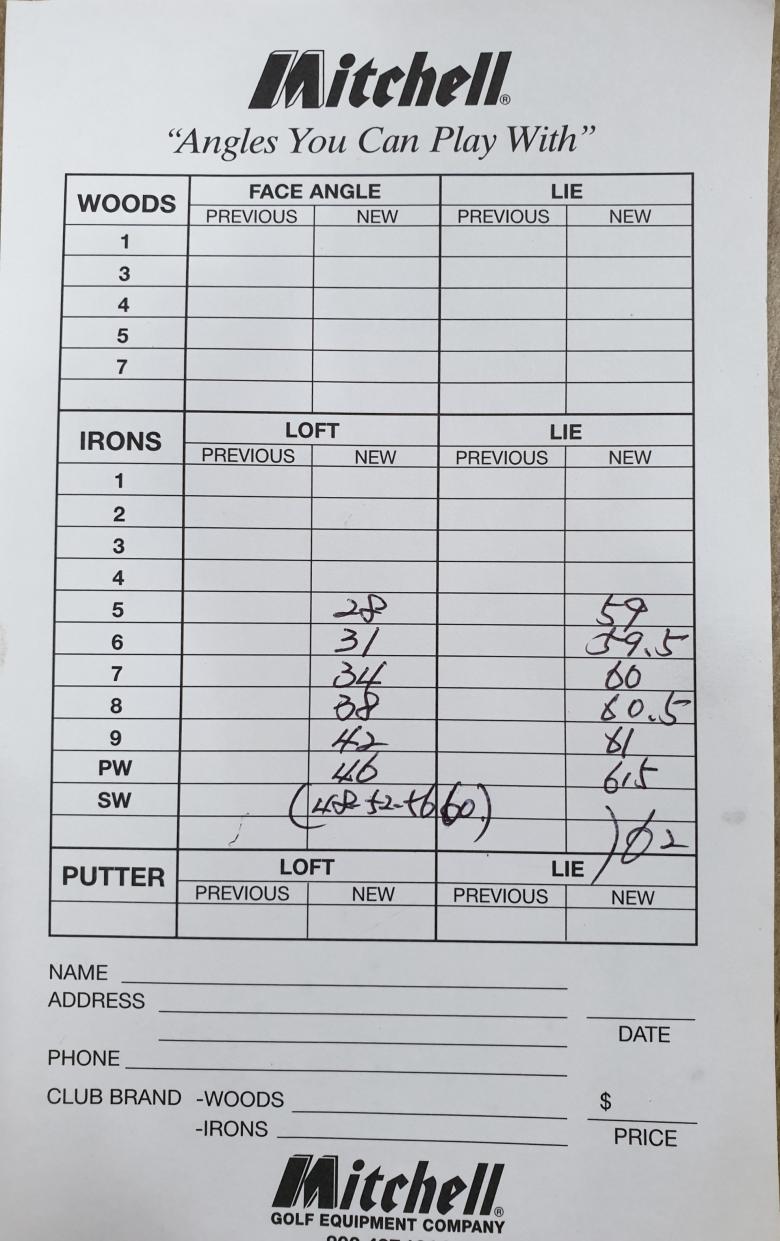 Mitchell®
“Angles You Can Play With”
WOODS FACE ANGLE LIE
PREVIOUS NEW PREVIOUS NEW
1
3
4
5
7
IRONS LOFT LIE
PREVIOUS NEW PREVIOUS NEW
1
2
3
4
5 28 59
6 31 59.5
7 34 60
8 38 60.5
9 42 61
PW 46 61.5
SW (48-52-56 60.)
) 62
PUTTER LOFT LIE
PREVIOUS NEW PREVIOUS NEW
NAME
ADDRESS
DATE
PHONE
CLUB BRAND -WOODS $
-IRONS PRICE
Mitchell®
GOLF EQUIPMENT COMPANY